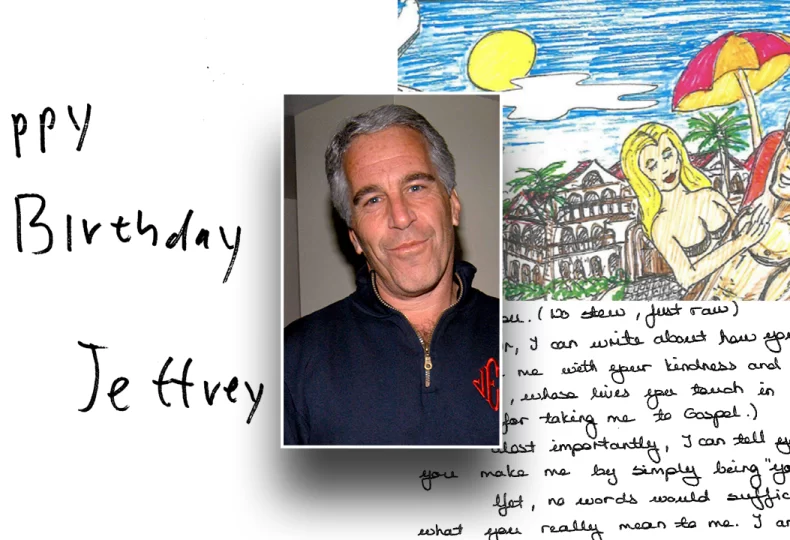 ppy
Birthday
Jeffrey
ou. (No stew, just raw)
r, I can write about how you
me with your kindness and
, whose lives you touch in
for taking me to Gospel.)
Most importantly, I can tell
you make me by simply being "yo
Yet, no words would suffic
what you really mean to me. I a